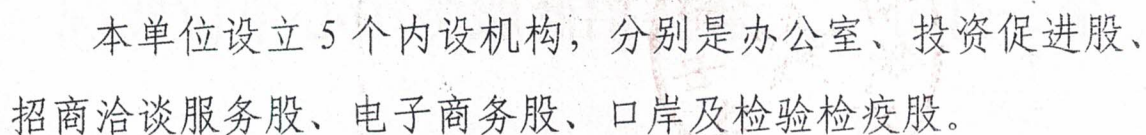 本单位设立 5 个内设机构，分别是办公室、投资促进股、
招商洽谈服务股、电子商务股、口岸及检验检疫股。